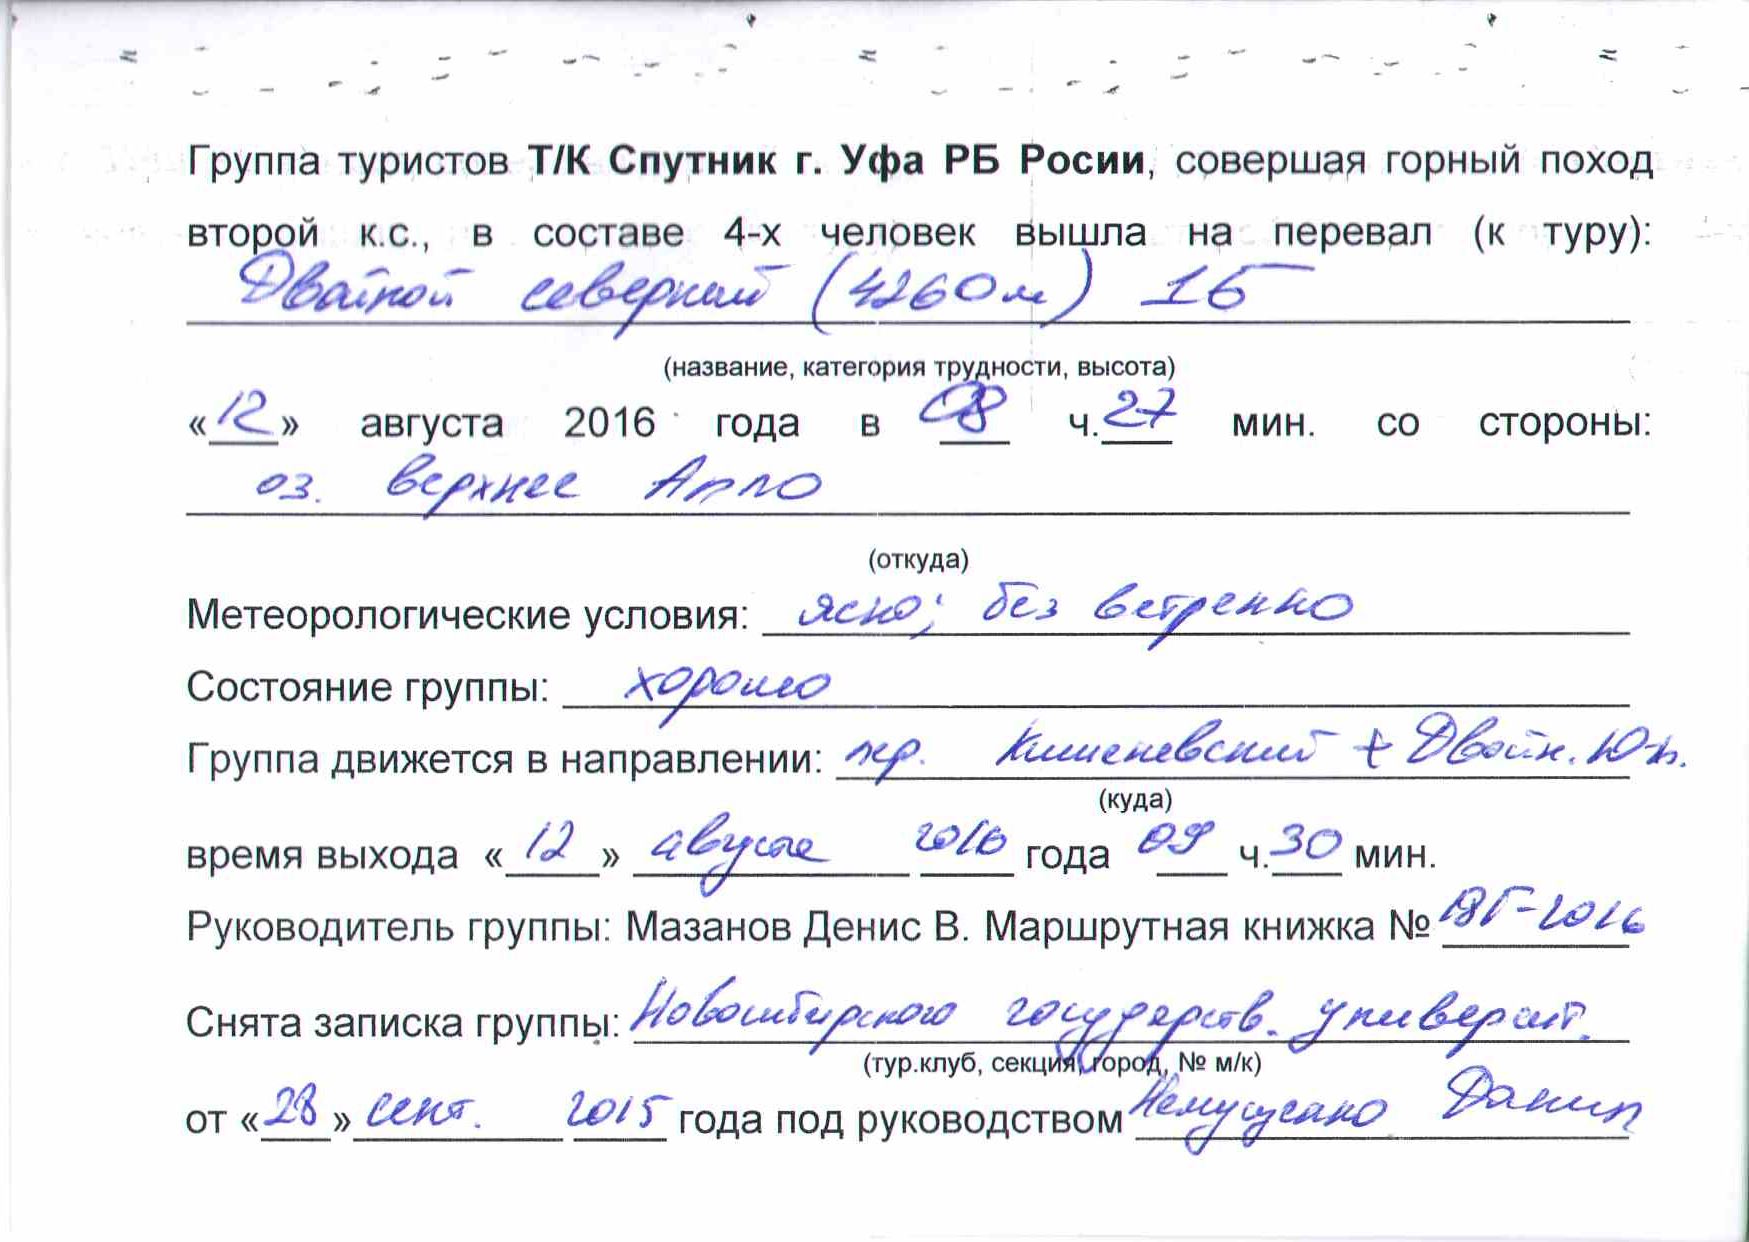 Группа туристов Т/К Спутник г. Уфа РБ Росии, совершая горный поход
второй к.с., в составе 4-х человек вышла на перевал (к туру):
Двойной северный (4260м) 1б
(название, категория трудности, высота)
«12» августа 2016 года в 08 ч. 27 мин. со стороны:
оз. верхнее Алло
(откуда)
Метеорологические условия: ясно; без ветренно
Состояние группы: хорошо
Группа движется в направлении: пер. Кишеневский + Двойн.
(куда)
время выхода «12» августа 2016 года 09 ч. 30 мин.
Руководитель группы: Мазанов Денис В. Маршрутная книжка №
Снята записка группы: Новосибирского государств. университ.
(тур.клуб, секция, город, № м/к)
от «28» сент. 2015 года под руководством Немущенко